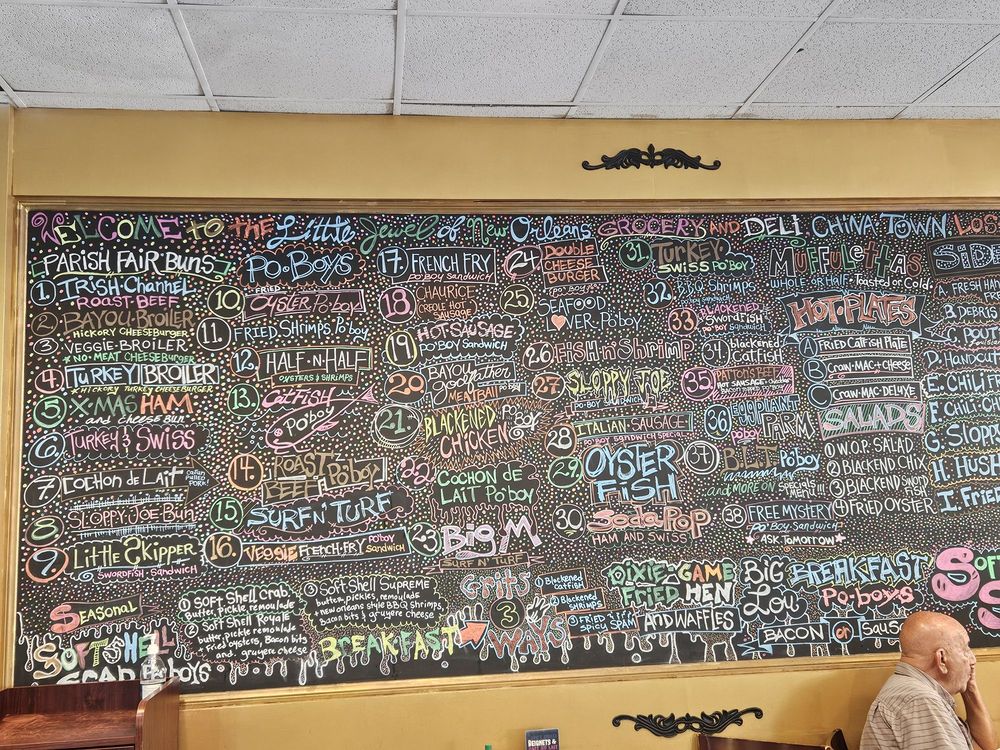 WELCOME to the Little Jewel of New Orleans GROCERY AND DELI CHINA TOWN LOS
PARISH FAIR BUNS
1. IRISH-CHANNEL
ROAST BEEF
2 BAYOU-BROILER
HICKORY CHEESEBURGER
3 VEGGIE-BROILER
*NO-MEAT CHEESEBURGER
4 TURKEY BROILER
HICKORY TURKEY CHEESEBURGER
5 X-MAS HAM
and cheese BUN
6. TURKEY & SWISS
7 COCHON de LAIT
8 SLOPPY-JOE-BUN
9. LITTLE SKIPPER
SWORDFISH-SANDWICH
PO-BOYS
10 FRIED OYSTER PO-BOY
11. FRIED SHRIMPS PO-BOY
12. HALF-N-HALF
OYSTERS & SHRIMPS
13. CATFISH
PO'BOY
14. ROAST BEEF PO'BOY
15 SURF N' TURF
16. VEGGIE FRENCH-FRY PO'BOY SANDWICH
17. FRENCH FRY
PO'BOY SANDWICH
18 CHAURICE
CREOLE HOT SAUSAGE
19 HOT-SAUSAGE
PO'BOY SANDWICH
20 BAYOU
goodfather
MEATBALL
21. BLACKENED CHICKEN PO BOY
22 COCHON de LAIT PO'BOY
23 Big M
SURF N' TURF
24 DOUBLE CHEESE BURGER
PO-BOY
25 SEAFOOD
LOVER PO'BOY
26 FISH n' SHRIMP
27 SLOPPY JOE
PO-BOY SANDWICH
28 ITALIAN-SAUSAGE
PO'BOY SANDWICH SPECIAL
29. OYSTER FISH
30 SODA POP
HAM AND SWISS
31 TURKEY
SWISS PO'BOY
32 B.B.Q SHRIMPS
33 BLACKENED SWORDFISH
PO'BOY SANDWICH
34 blackened CATFISH
35 PATTON'S BEEF
HOT SAUSAGE
36 EGGPLANT PARM
PO'BOY
37 B.L.T PO'BOY
and MORE ON SPECIALS MENU!!!
38 FREE MYSTERY
PO'BOY SANDWICH
ASK TOMORROW
MUFFULETTAS
WHOLE or HALF Toasted or Cold
HOT-PLATES
A. FRIED CATFISH PLATE
B CRAW-MAC+CHEESE
C CRAW-MAC-DELUXE
SALADS
1 W.O.P. SALAD
2 BLACKEND CHIX
3 BLACKEND SWORD FISH
4 FRIED OYSTER
SIDE
A. FRESH
B. DEBRIS
D. HANDCUT
E. CHILI F
F CHILI-CH
G. SLOPP
H. HUSH
I. FRIE
SEASONAL
SOFT SHELL CRAB PO BOYS
1 SOFT SHELL CRAB
butter, pickle, remoulade
2 SOFT SHELL ROYALE
butter, pickle remoulade
+ fried oysters, Bacon bits
and gruyere cheese
3 SOFT SHELL SUPREME
butter, pickles, remoulade
+ new orleans style BBQ shrimps,
bacon bits & gruyere cheese
BREAKFAST
GRITS
3
WAYS
1 BLACKENED CATFISH
2 BLACKENED SHRIMPS
3 FRIED EGG or SPAM
DIXIE GAME
FRIED HEN
AND WAFFLES
BIG LOU
BREAKFAST
PO-BOYS
BACON or SAUS
BEIGNETS &